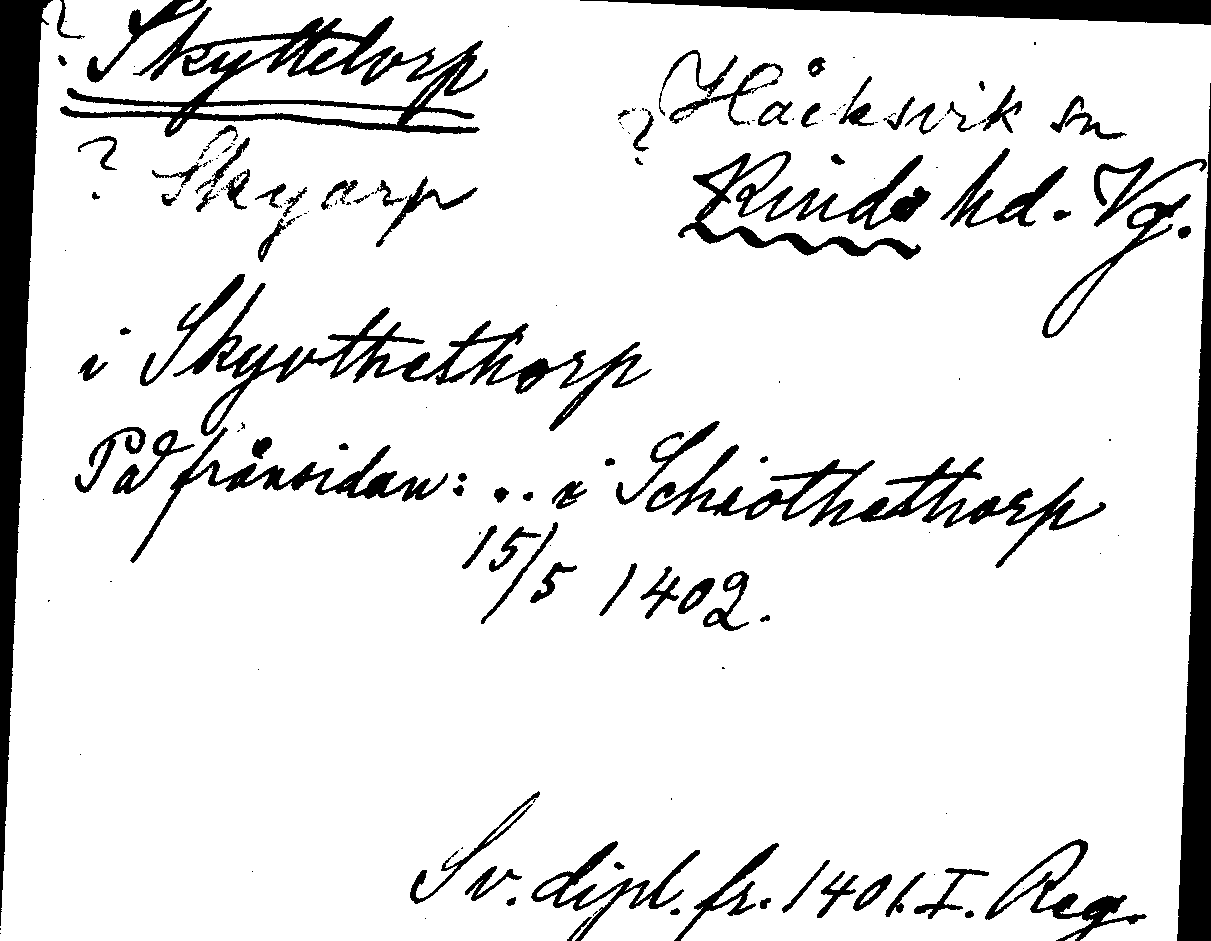 ? Skyttetorp
? Håcksvik sn
? Skyarp
Kinds hd. Vg.
i Skyvthethorp
På frånsidan: .. i Schiothethorp
15/5 1402.
Sv. dipl. fr. 1401. I. Reg.